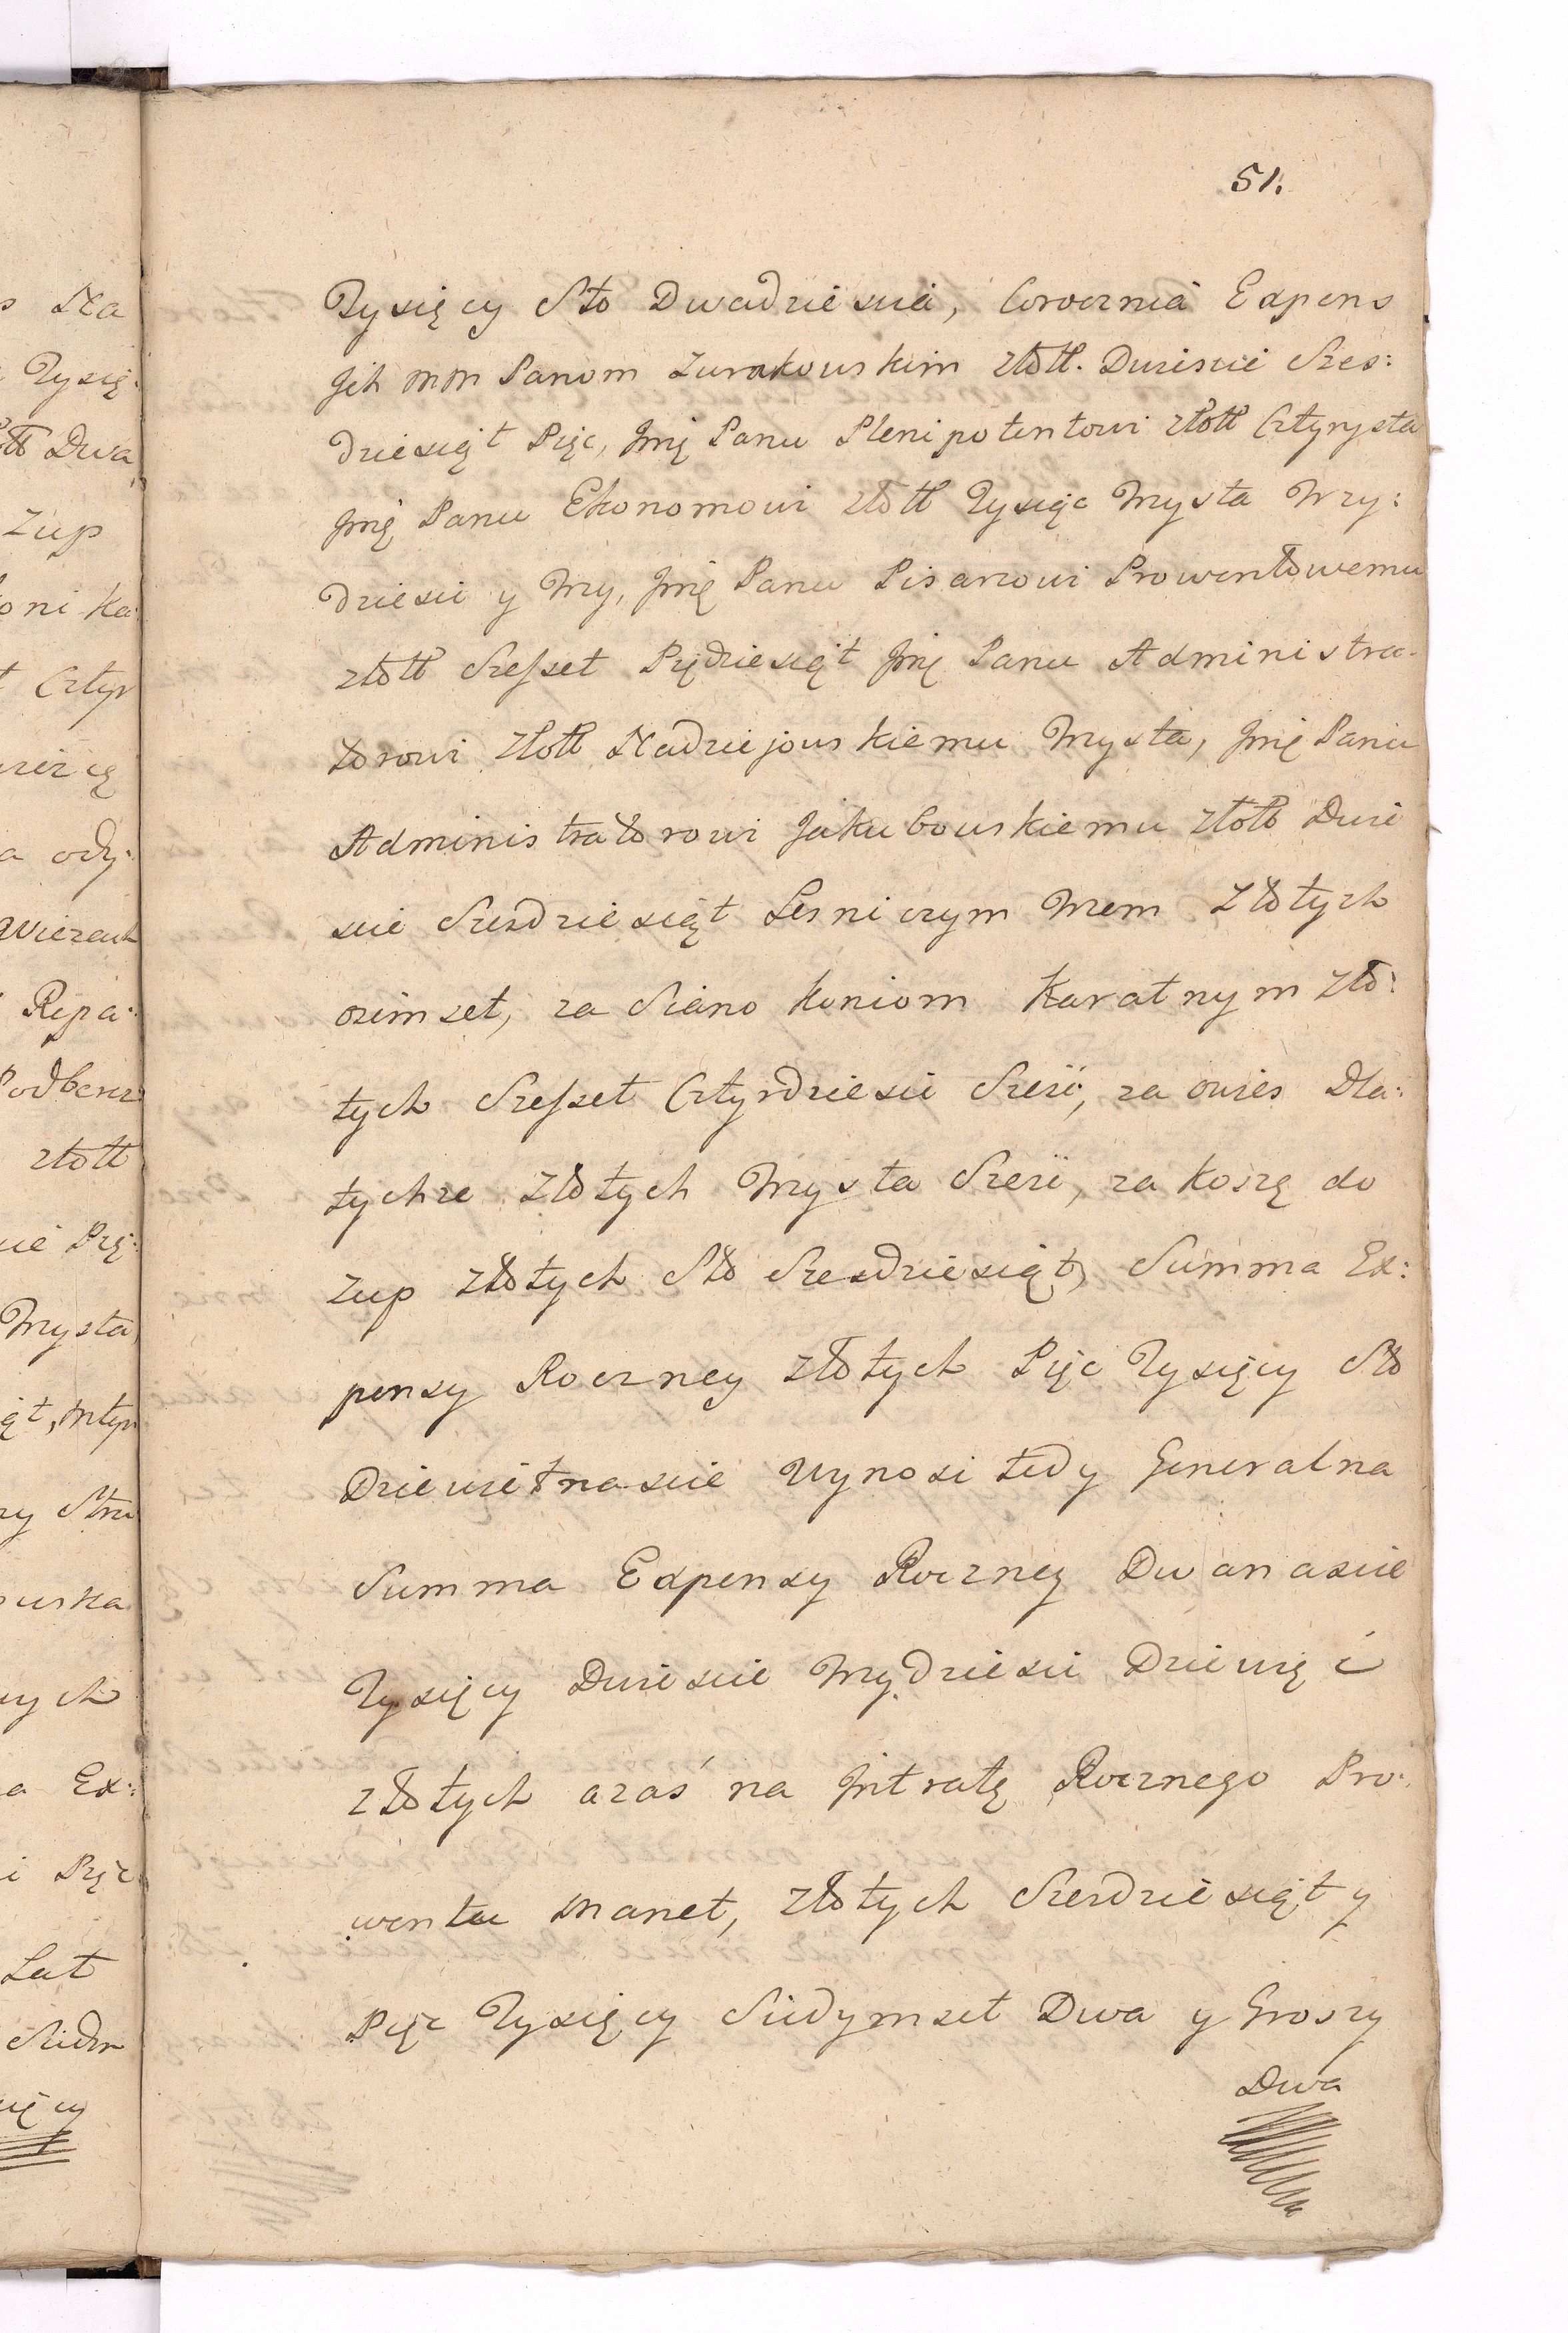 51.
Tysięcy Sto Dwadziescia, Corocznia Expens
Jch mm Panom Zurakowskim złott. Dwiescie Szes:
dziesiąt Pięc, Jmę Panu Plenipotentowi złott Cztyrysta
Jmę Panu Ekonomowi złott Tysiąc Trzysta Trzy:
dziesci y Trzy, Jmę Panu Pisarzowi Prowentowemu
złott Szesset Pędziesiąt Jmę Panu Administra-
torowi złott Nadziejowskiemu Trzysta, Jmę Panu
Administratorowi Jakubowskiemu złott Dwie
scie Szesdziesiąt Lesniczym Trzem Złotych
ozimset, za Siano koniom Karatnym Zło:
tych Szesset Cztyrdziesci Szesć, za owies Dla:
tychze Złotych Trzysta Szesć, za koszę do
Zup Złotych Sto Szesdziesiąt, Summa Ex:
pensy Roczney Złotych Pięc Tysięcy Sto
Dziewietnascie Wynosi tedy Generalna
Summa Expensy Roczney Dwanascie
Tysięcy Dwiescie Trzydziesci Dziewięć
złotych azas na Jntratę Rocznego Pro:
wentu manet, Złotych Szesdziesiąt y
Pięc Tysięcy Siedymset Dwa y Groszy
Dwa
s Na
Tysię:
ott Dwa
Zup
oni ka:
t Cztyr
a ody:
Repa:
Podberez
złott
cie Pię:
Trzysta
ąt, młyn
ry Stru
ych
a Ex:
i Pięc
Lat
Siedm
ięcy